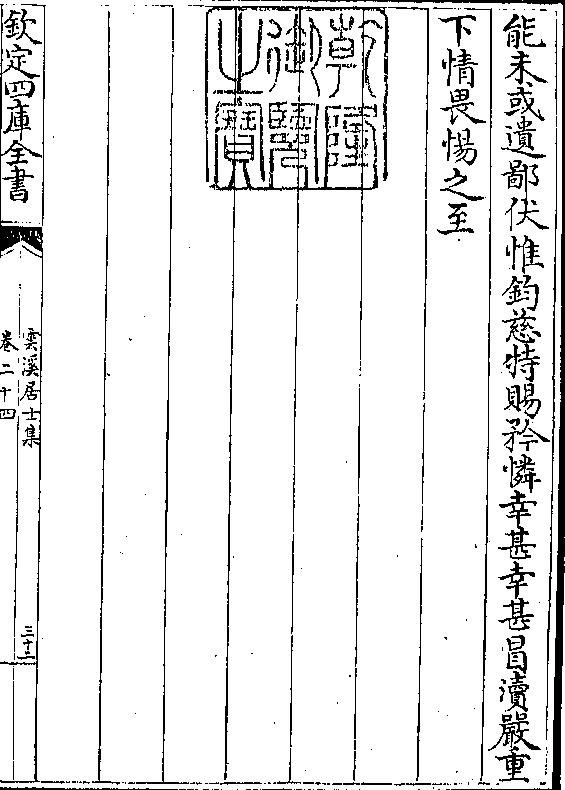 能未或遺鄙伏惟鈞慈特賜矜憐幸甚幸甚冒瀆嚴重
下情畏惕之至
乾隆
御覽
之寶
欽定四庫全書
雲溪居士集
卷二十四
三十二